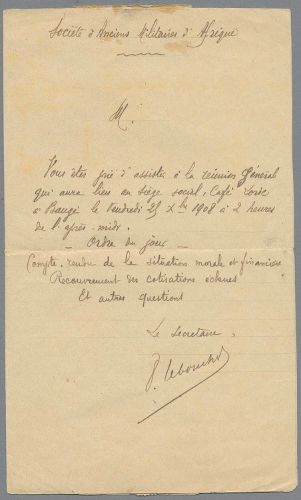 Société d'Anciens Militaires d'Afrique
M.
Vous êtes prié d'assister à la réunion Général
qui aura lieu au siège social, Café
à Baugé le Vendredi 25 Xbre 1908 à 2 heures
de l'après-midi.
- Ordre du jour -
Compte-rendu de la situation morale et financière
Recouvrement des cotisations échues
Et autres questions
Le Secrétaire,